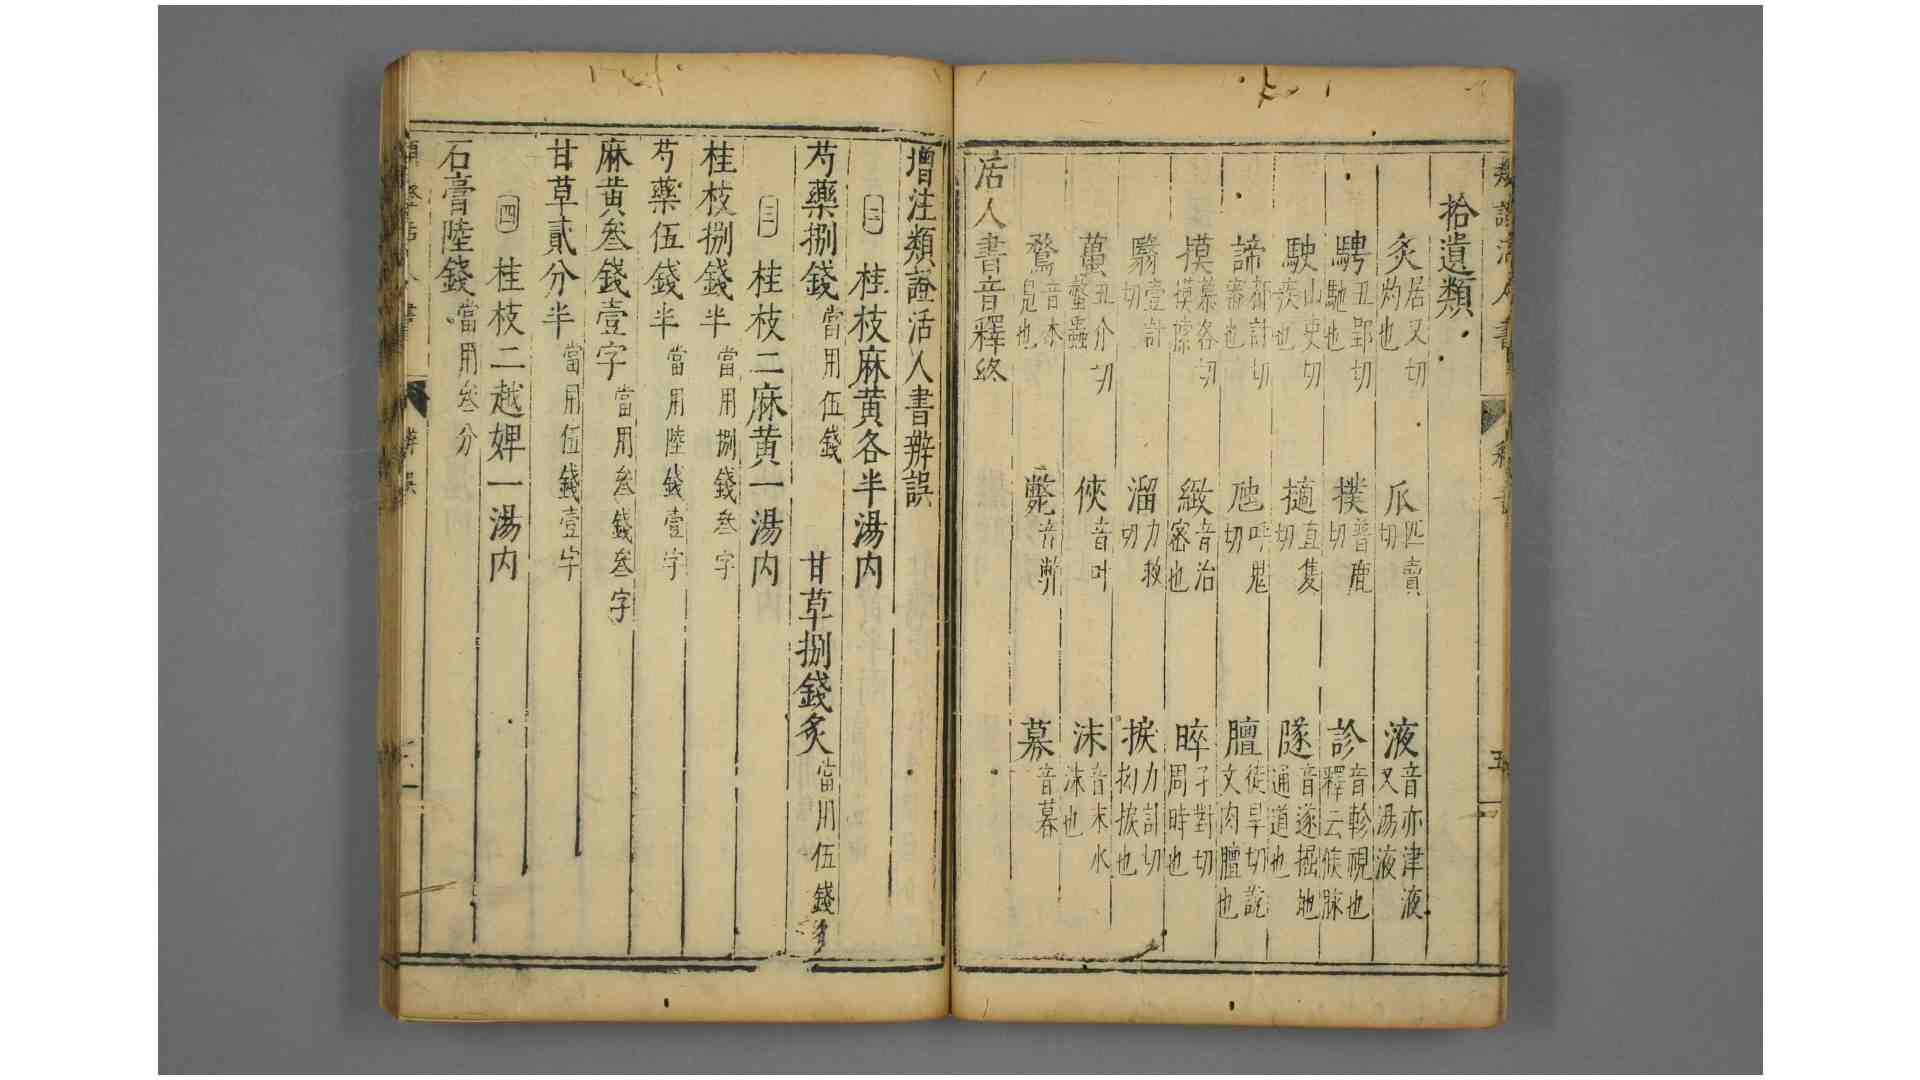 拾遺類
灸居又切灼也 𤓰匹賣切 液音亦津液又湯液
騁丑郢切馳也 撲普鹿切 診音軫視也釋云候脉也
駛山吏切疾也 擿直隻切 隧音遂掘地通道也
諦都計切審也 虺呼鬼切 膻徒旱切說文肉膻也
摸慕各切摸㨪 緻音治密也 晬子對切周時也
翳壹計切 溜力救切 捩力計切拗捩也
蠆丑介切螫蟲 俠音叶 沬音末水沫也
鶩音木鳧也 斃音弊 募音暮
活人書音釋終
增注類證活人書辨誤
二 桂枝麻黄各半湯内
芍藥捌錢當用伍錢 甘草捌錢炙當用伍錢
三 桂枝二麻黄一湯内
桂枝捌錢半當用捌錢叁字
芍藥伍錢半當用陸錢壹字
麻黄叁錢壹字當用叁錢叁字
甘草貳分半當用伍錢壹字
四 桂枝二越婢一湯内
石膏陸錢當用叁分